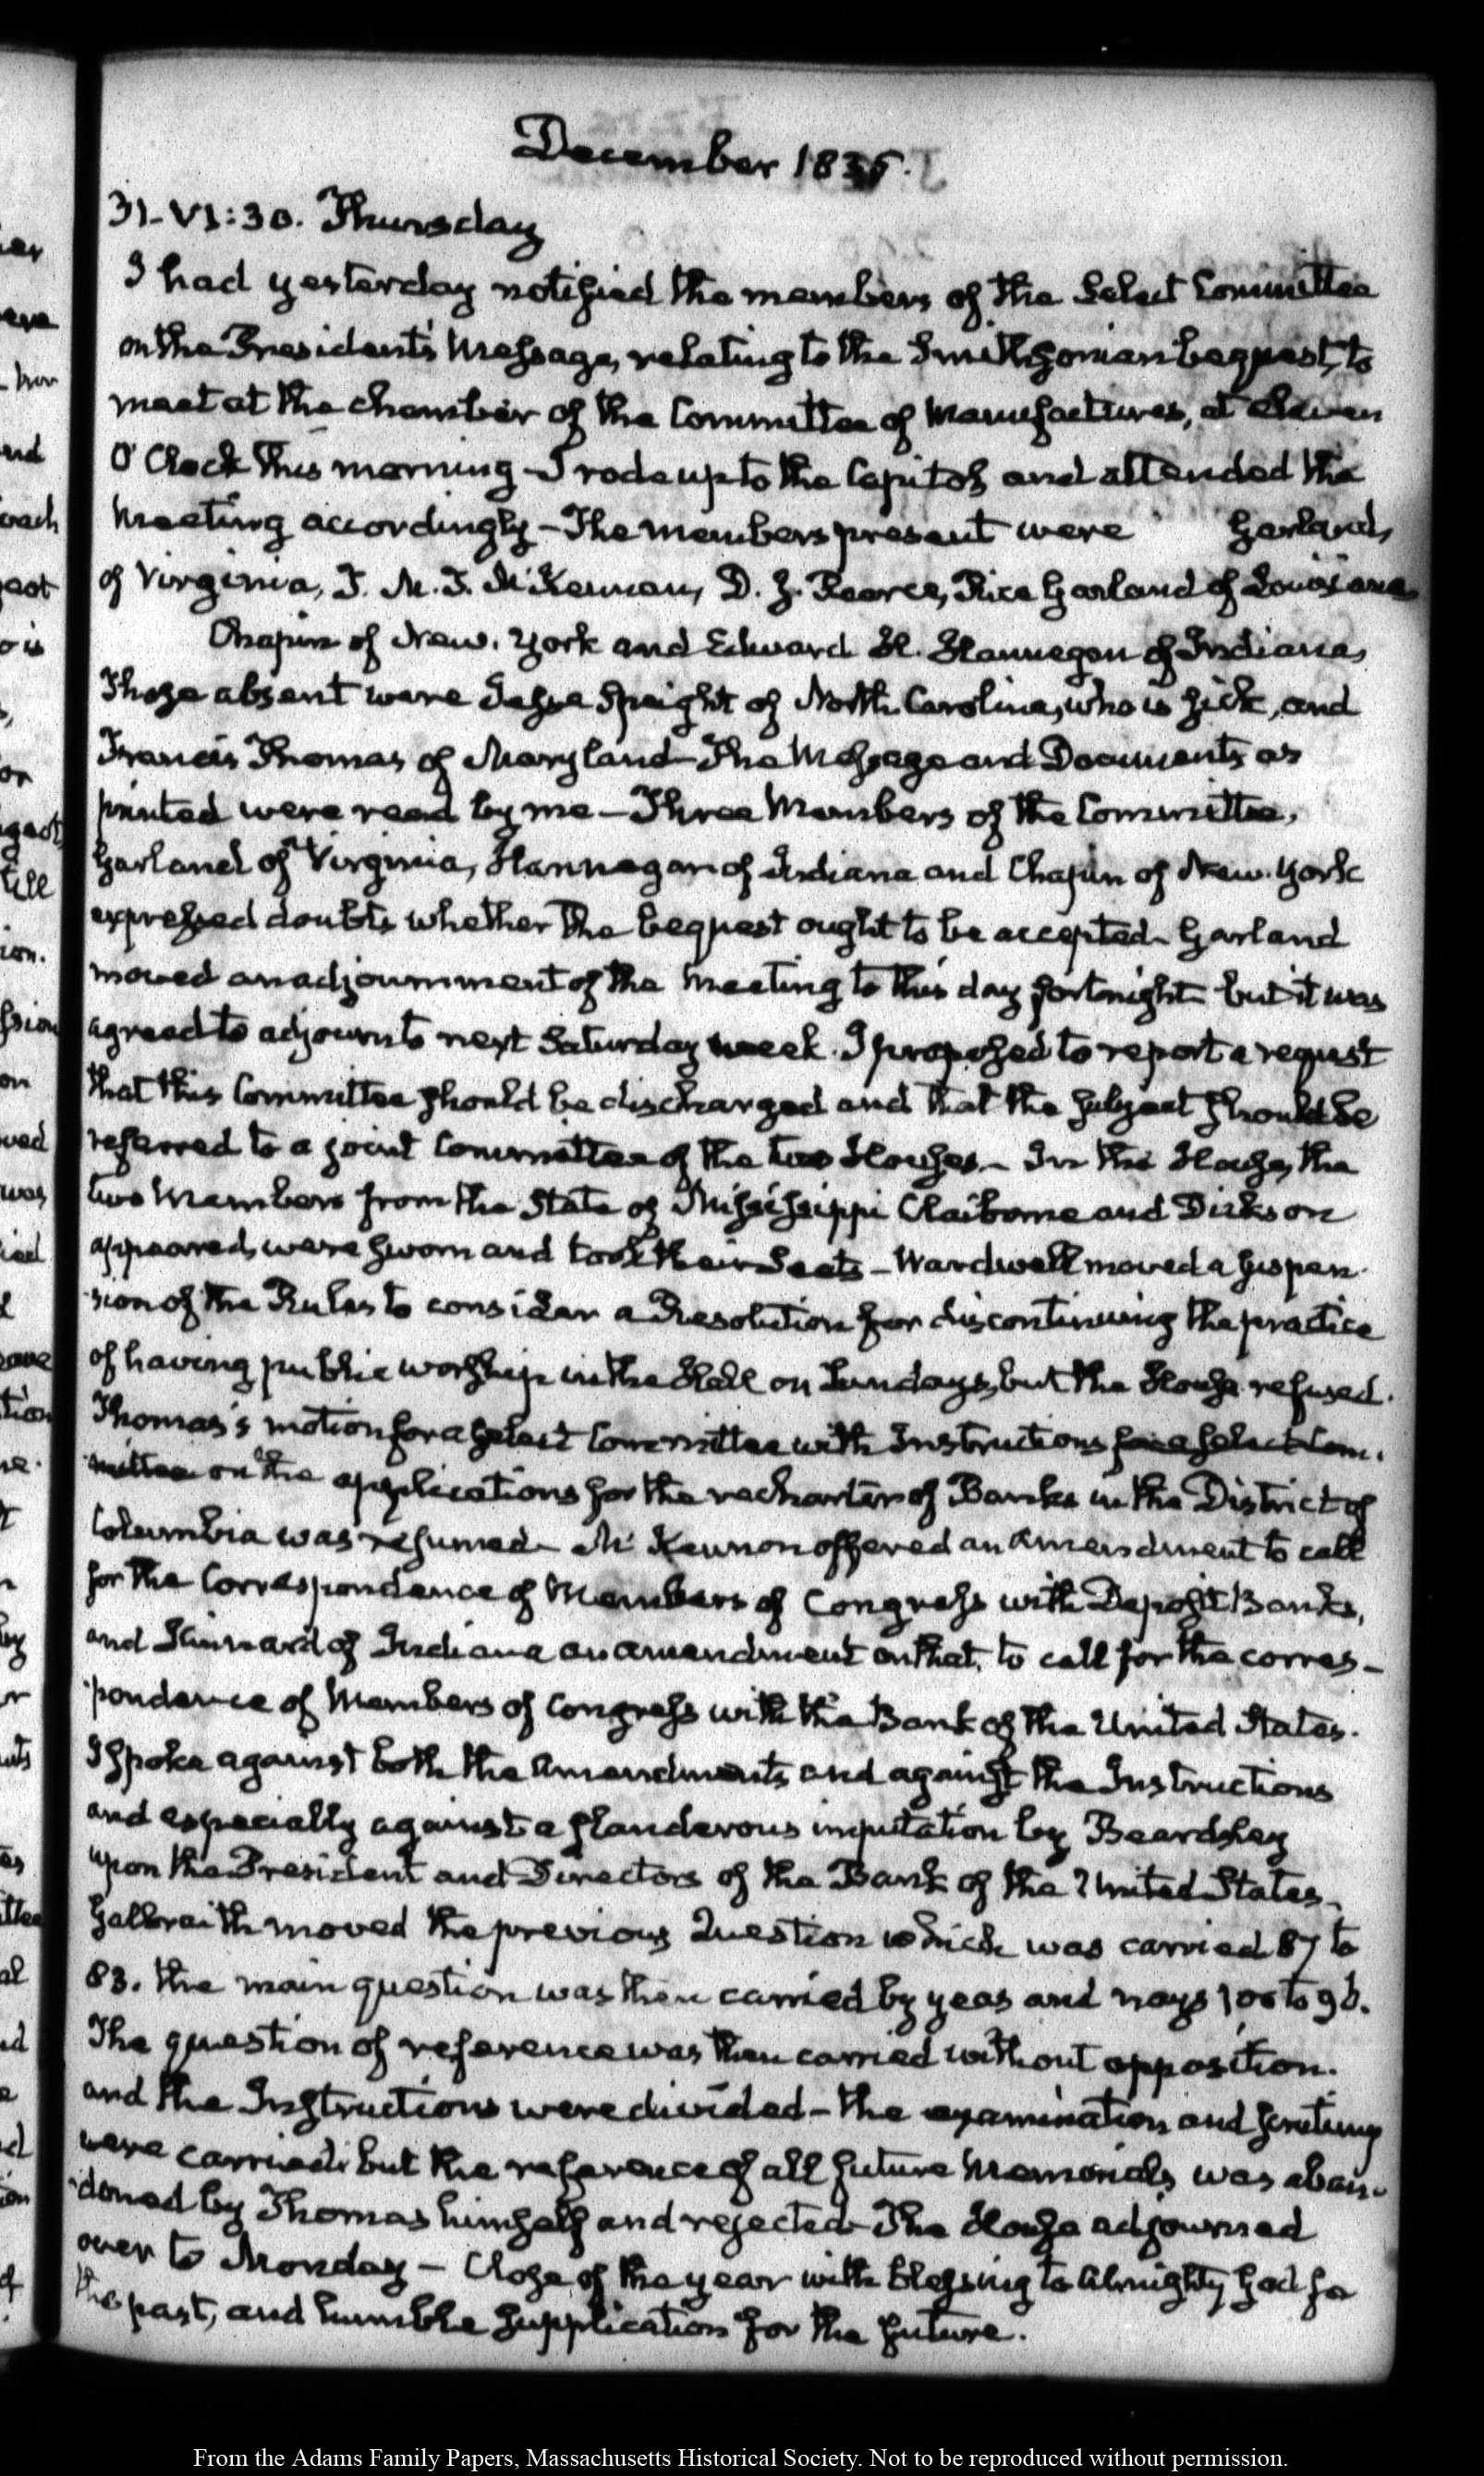 December 1835.
31-VI:30. Thursday
I had yesterday notified the members of the Select Committee
on the President's Message, relating to the Smithsonian bequest, to
meet at the chamber of the Committee of Manufactures, at eleven
O'Clock this morning - I rode up to the Capitol and attended the
Meeting accordingly - The members present were Garland,
of Virginia, T. M. T. McKennan, D. J. Pearce, Rice Garland of Louisiana
Chapin of New. York and Edward A. Hannegan of Indiana,
Those absent were Jesse Speight of North Carolina, who is sick, and
Francis Thomas of Maryland - The Message and Documents as
printed were read by me - Three Members of the Committee,
Garland of Virginia, Hannegan of Indiana and Chapin of New. York
expressed doubts whether the bequest ought to be accepted - Garland
moved an adjournment of the Meeting to this day fortnight but it was
agreed to adjourn to next Saturday week. I proposed to report a request
that this Committee should be discharged and that the subject should be
referred to a joint Committee of the two Houses - In the House, the
two Members from the State of Mississippi Claiborne and Dickson
appeared, were sworn and took their Seats - Wardwell moved a suspen-
sion of the Rules to consider a Resolution for discontinuing the practice
of having public worship in the Hall on Sundays, but the House refused.
Thomas's motion for a select Committee with Instructions for a select Com-
mittee on the applications for the recharter of Banks in the District of
Columbia was resumed - McKennon offered an amendment to call
for the Correspondence of Members of Congress with Deposit Banks,
and Kinnard of Indiana an amendment on that, to call for the corres-
pondence of Members of Congress with the Bank of the United States.
I spoke against both the amendments and against the Instructions
and especially against a slanderous imputation by Beardsley
upon the President and Directors of the Bank of the United States -
Galbraith moved the previous Question which was carried 87 to
83. the main question was then carried by yeas and nays 106 to 96.
The question of reference was then carried without opposition.
and the Instructions were divided - the examination and scrutiny
were carried: but the reference of all future Memorials was aban-
doned by Thomas himself and rejected - The House adjourned
over to Monday - Close of the year with blessing to Almighty God for
the past, and humble supplication for the future.
From the Adams Family Papers, Massachusetts Historical Society. Not to be reproduced without permission.